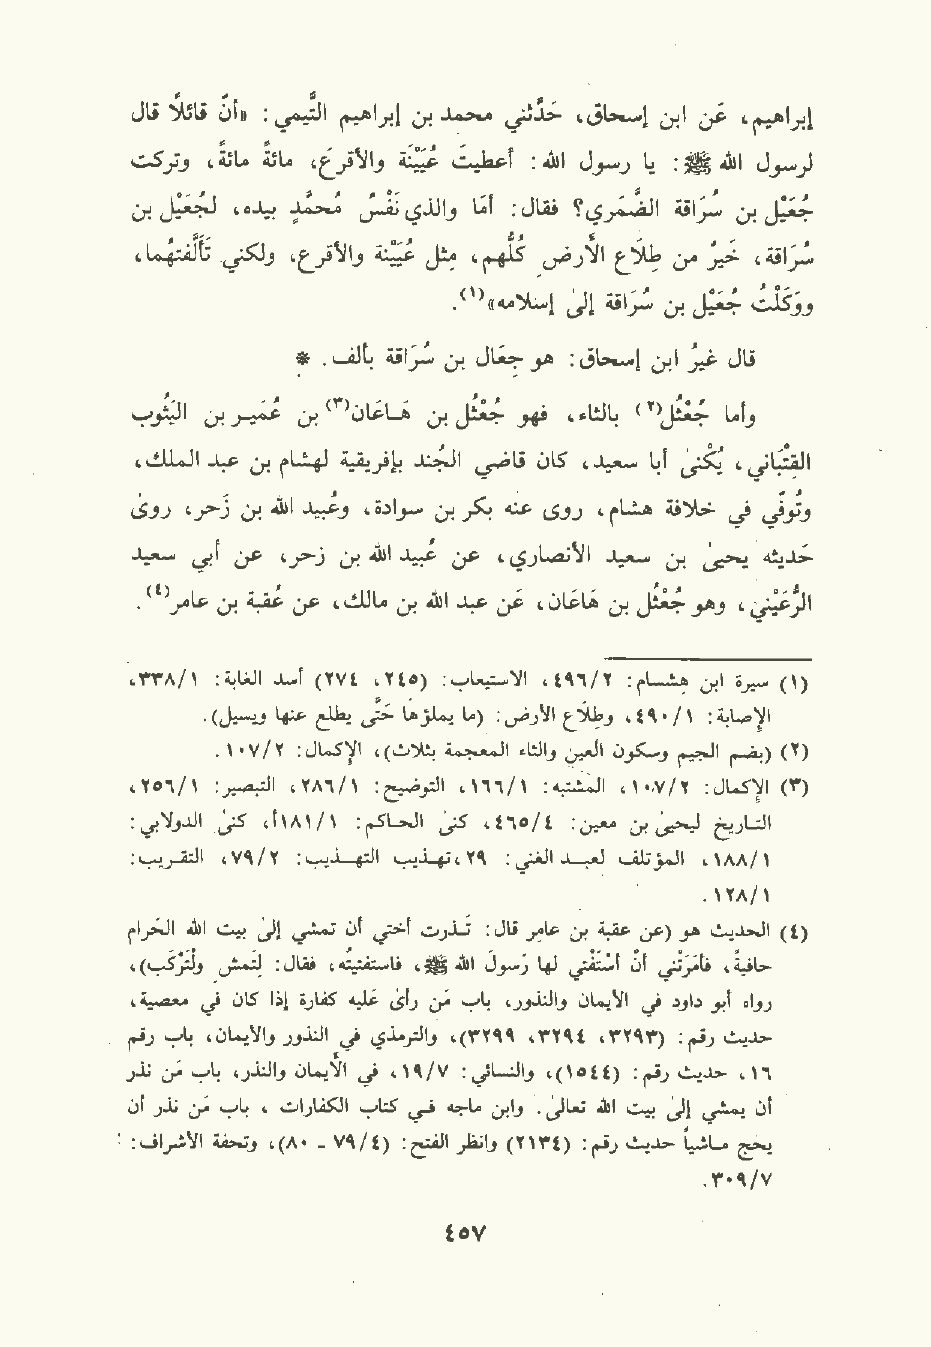 إبراهيم، عَن ابن إسحاق، حَدّثني محمد بن إبراهيم التَّيمي: «أنّ قائلًا قال
لرسول الله ﷺ: يا رسول الله: أعطيتَ عُيَيْنَة والأقرعَ، مائةً مائةً، وتركت
جُعَيْل بن سُرَاقة الضَّمري؟ فقال: أمَا والذي نَفْسُ مُحمدٍ بيده، لَجُعَيْل بن
سُرَاقة، خَيرٌ من طِلَاعِ الأرضِ كُلِّهم، مثل عُيَيْنة والأقرع، ولكني تَأَلَّفتُهما،
ووَكَلْتُ جُعَيْل بن سُرَاقة إلىٰ إسلامه»(١).
قال غيرُ ابن إسحاق: هو جِعَال بن سُرَاقة بألف. *
وأما جُعْثُل(٢) بالثاء، فهو جُعْثُل بن هَـاعَان(٣) بن عُمَـيـر بن اليَثُوب
القِتْبَاني، يُكْنىٰ أبا سعيد، كان قاضي الجُند بإفريقية لهشام بن عبد الملك،
وتُوفّي في خلافة هشام، روى عنه بكر بن سوادة، وعُبيد الله بن زَحر، روىٰ
حَديثه يحيىٰ بن سعيد الأنصاري، عن عُبيد الله بن زحر، عن أبي سعيد
الرُّعَيْني، وهو جُعْثُل بن هَاعَان، عَن عبد الله بن مالك، عن عُقبة بن عامر(٤).
(١) سيرة ابن هِشـام: ٤٩٦/٢، الاستيعاب: (٢٤٥، ٢٧٤) أسد الغابة: ٣٣٨/١،
الإصابة: ٤٩٠/١، وطِلَاع الأرض: (ما يملؤها حَتّى يطلع عنها ويسيل).
(٢) (بضـم الجيم وسكون العين والثاء المعجمة بثلاث)، الإكمال: ١٠٧/٢.
(٣) الإكمال: ١٠٧/٢، المشتبه: ١٦٦/١، التوضيح: ٢٨٦/١، التبصير: ٢٥٦/١،
التـاريخ ليحيىٰ بن معين: ٤٦٥/٤، كنىٰ الحـاكم: ١٨١/١أ، كنىٰ الدولابي:
١٨٨/١، المؤتلف لعبـد الغني: ٢٩، تهـذيب التهـذيب: ٧٩/٢، التقـريب:
١٢٨/١.
(٤) الحديث هو (عن عقبة بن عامر قال: نَـذرت أختي أن تمشي إلىٰ بيت الله الحَرام
حافيةً، فأمَرَتْني أن أسْتَفْتي لها رسولَ الله ﷺ، فاستفتيتُه، فقال: لِتَمش ولْتركَب)،
رواه أبو داود في الأيمان والنذور، باب مَن رأىٰ عَليه كفارة إذا كان في معصية،
حديث رقم: (٣٢٩٣، ٣٢٩٤، ٣٢٩٩)، والترمذي في النذور والأيمان، باب رقم
١٦، حديث رقم: (١٥٤٤)، والنسائي: ١٩/٧، في الأيمان والنذر، باب مَن نذر
أن يمشي إلىٰ بيت الله تعالىٰ. وابن ماجه في كتاب الكفارات، باب مَن نذر أن
يحج ماشياً حديث رقم: (٢١٣٤) وانظر الفتح: (٧٩/٤ - ٨٠)، وتحفة الأشراف:
٣٠٩/٧.
٤٥٧